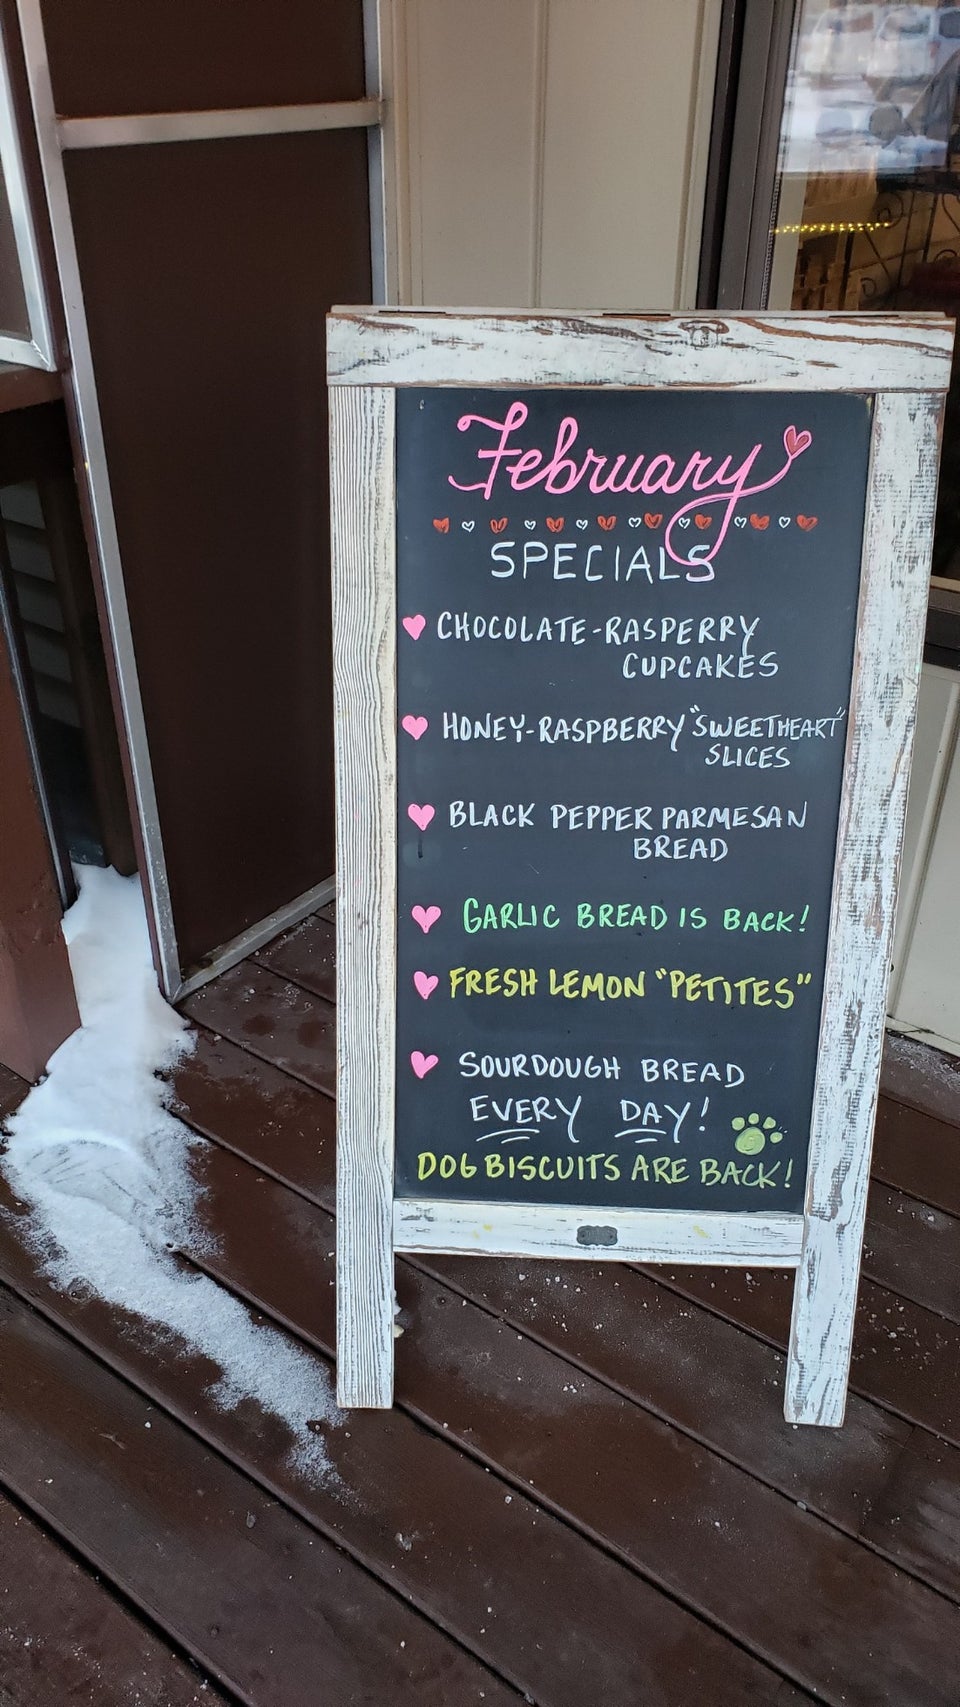 February
SPECIALS
CHOCOLATE-RASPERRY
CUPCAKES
HONEY-RASPBERRY "SWEETHEART"
SLICES
BLACK PEPPER PARMESAN
BREAD
GARLIC BREAD IS BACK!
FRESH LEMON "PETITES"
SOURDOUGH BREAD
EVERY DAY!
DOG BISCUITS ARE BACK!